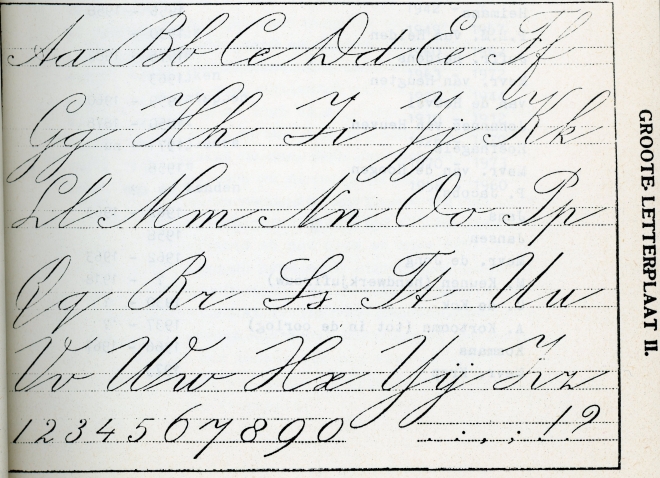 Aa Bb Cc Dd Ee Ff
Gg Hh Ii Jj Kk
Ll Mm Nn Oo Pp
Qq Rr Ss Tt Uu
Vv Ww Xx Yij Zz
1 2 3 4 5 6 7 8 9 0 . : , ; ! ?
GROOTE LETTERPLAAT II.